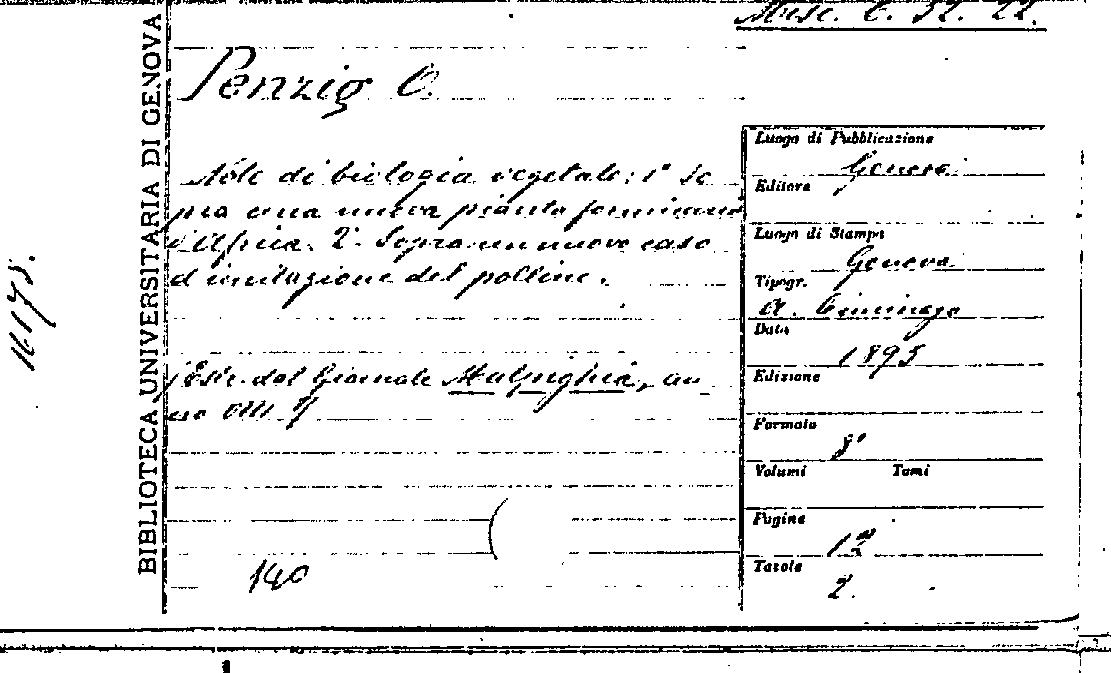 Misc. C. 32. 22.
BIBLIOTECA UNIVERSITARIA DI GENOVA
16175.
Penzig O.
Note di biologia vegetale: 1° So
pra una nuova pianta formicaria
d'Africa. 2° Sopra un nuovo caso
d'imitazione del polline.
(Estr. dal Giornale Malpighia, an
no VIII.)
140
Luogo di Pubblicazione
Genova
Editore
Luogo di Stampa
Genova
Tipogr.
A. Ciminago
Data
1895
Edizione
Formato
8°
Volumi Tomi
Pagine
12
Tavole
2.